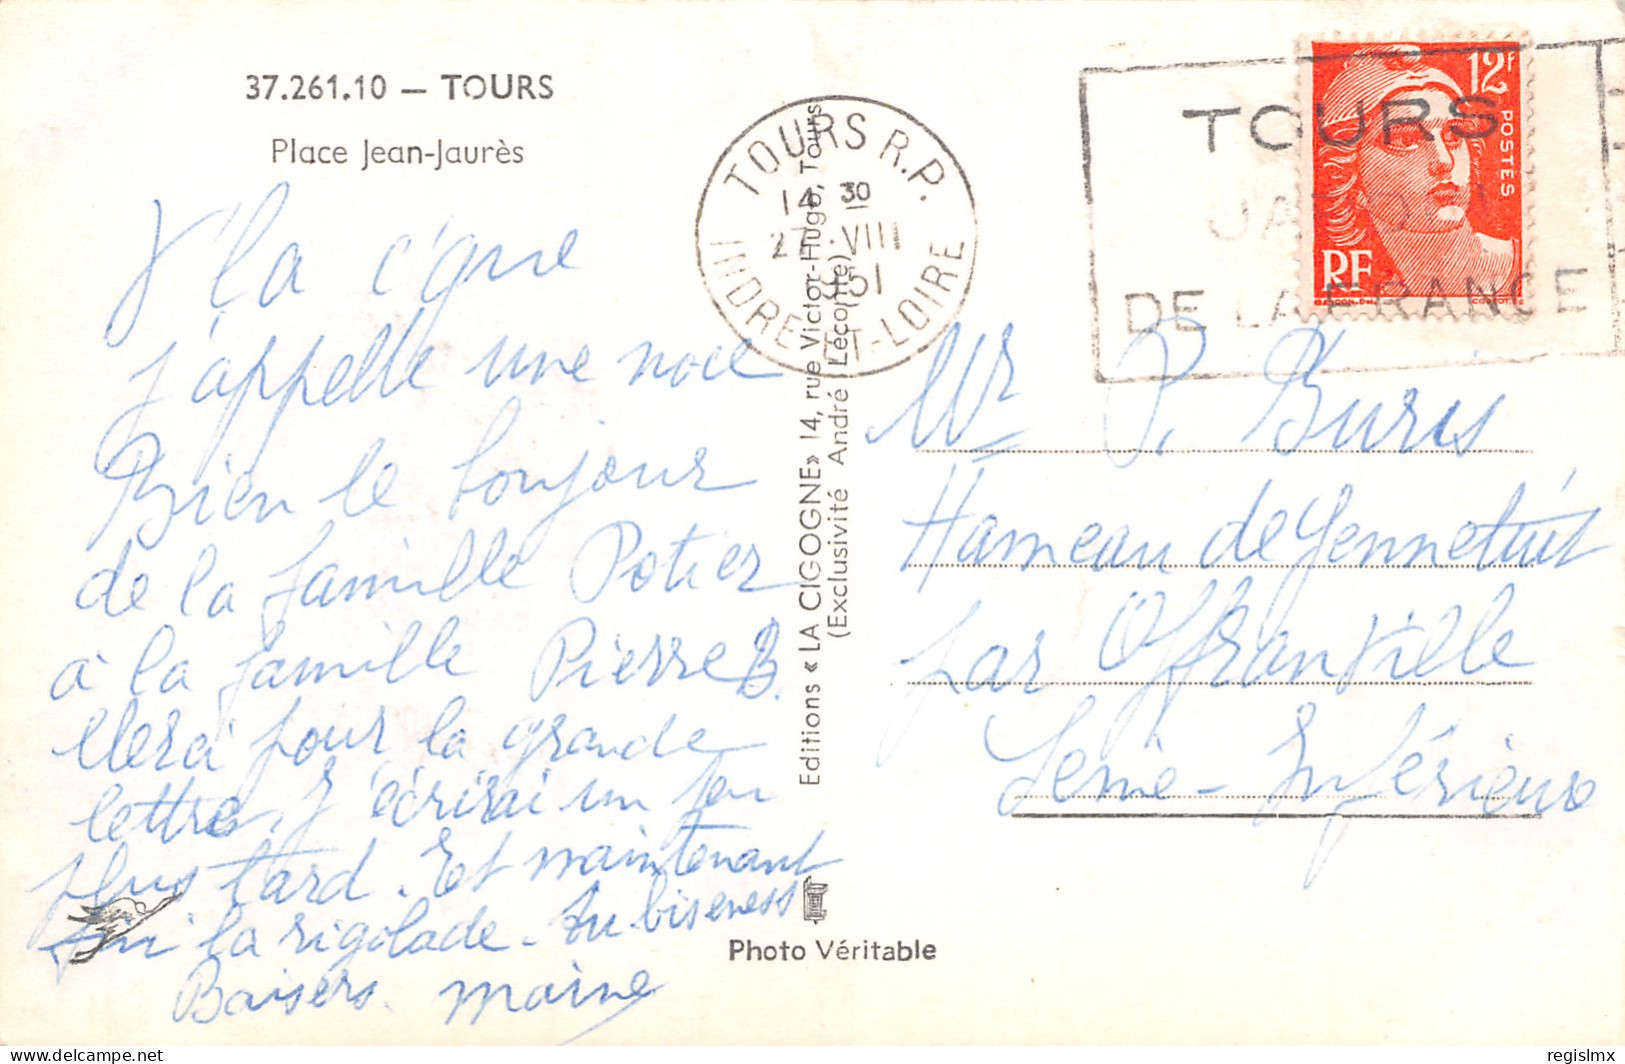 37.261.10 — TOURS
Place Jean-Jaurès
V'la c'que
j'appelle une noce
Bien le bonjour
de la famille Potier
à la famille Pierre B.
Merci pour la grande
lettre. J'écrirai un peu
plus tard. Et maintenant
fini la rigolade. Au biseness
Baisers.
Editions « LA CIGOGNE » 14, rue Victor-Hugo, Tours
(Exclusivité André Lecomte)
Photo Véritable
TOURS R.P.
14 30
27 VIII
1951
INDRE-ET-LOIRE
TOURS
JARDIN
DE LA FRANCE
12F
POSTES
RF
Mr P. Burès
Hameau de
par Offranville
Seine-Inférieure
delcampe.net
regislmx